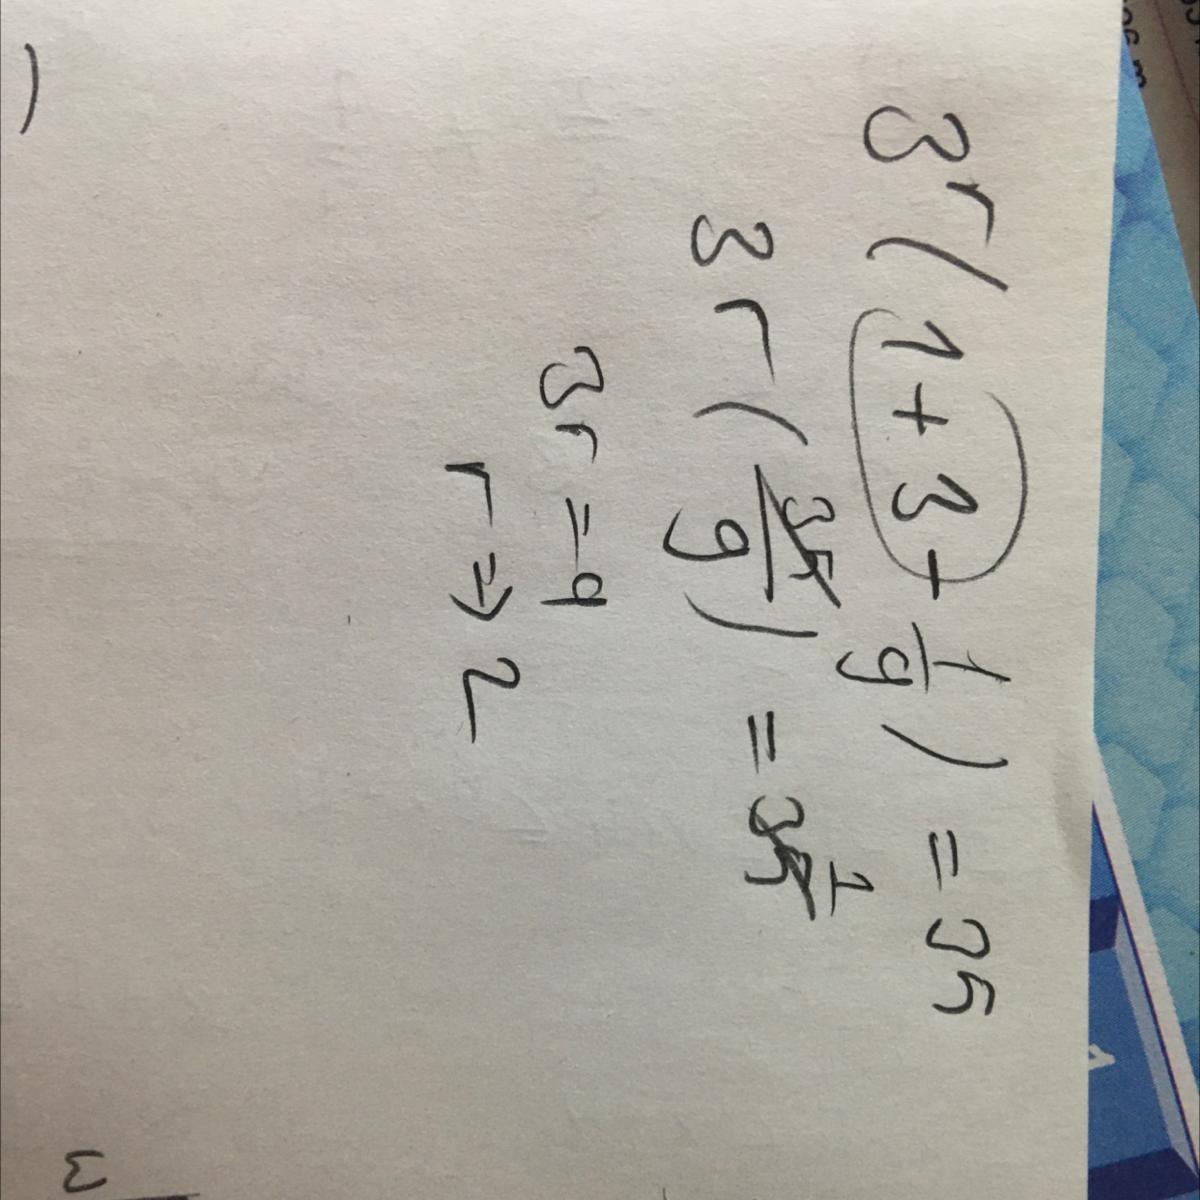 3^r(1+3-1/9)=35
3^r(35/9)=35 1
3^r=9
r⇒2
3